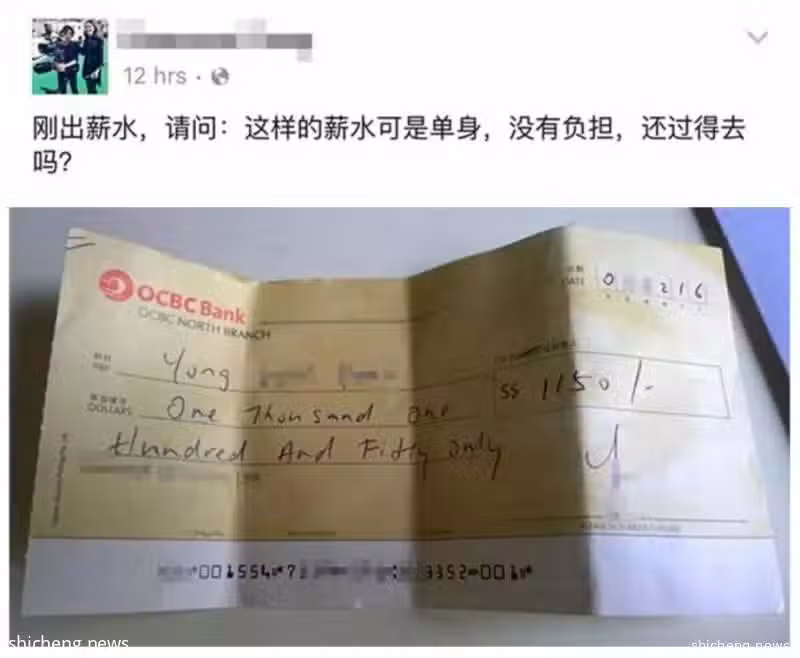 12 hrs
刚出薪水，请问：这样的薪水可是单身，没有负担，还过得去
吗？
OCBC Bank
OCBC NORTH BRANCH
DATE 0 216
Yong
S$ 1150/-
DOLLARS One Thousand One
Hundred And Fifty only
001554 7 3352 001
shicheng.news
shicheng.news